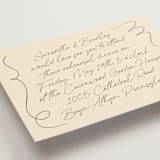 Samantha & Bradley
would love for you to attend
their rehearsal dinner on
Friday, May 19th, 5 o'clock
at the Cairnwood Garden House
1005 Cathedral Road
Bryn Athyn, Pennsylv